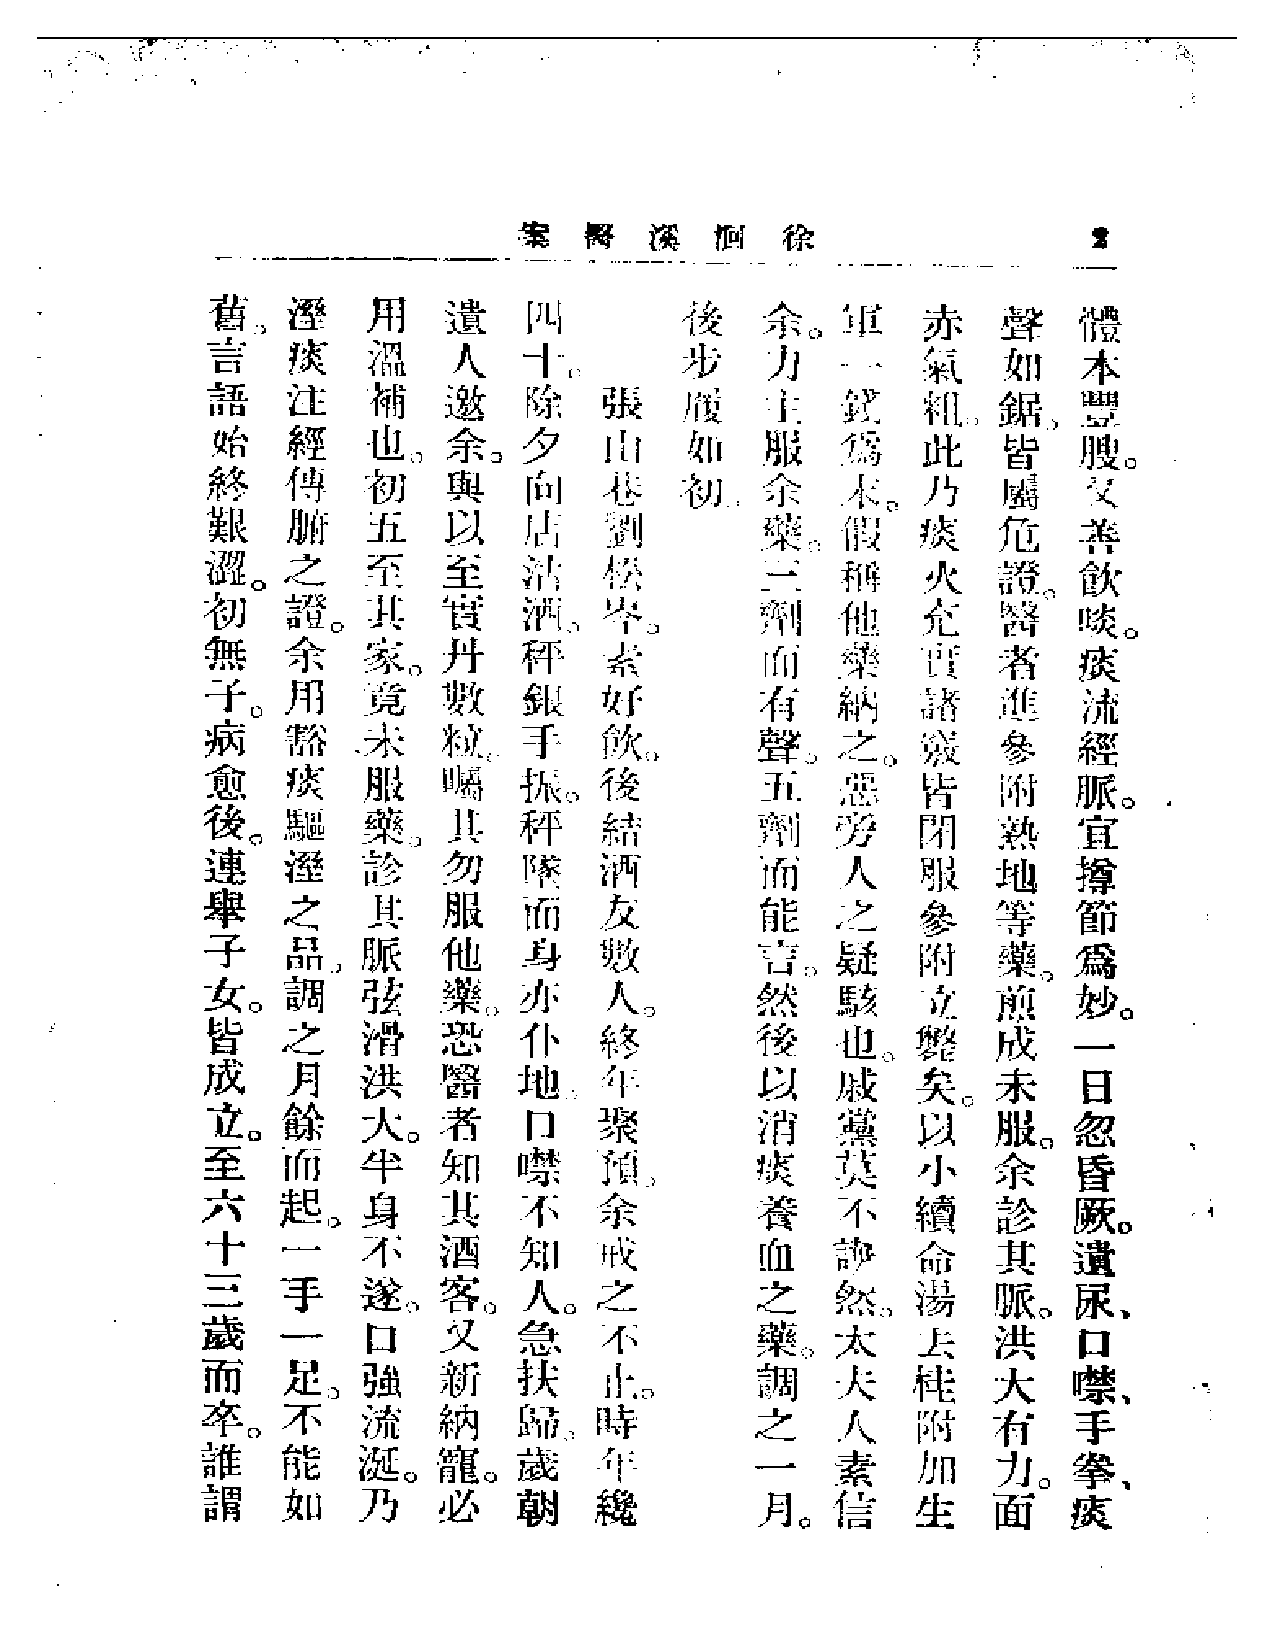 徐洄溪醫案
體本豐腴。又善飲啖。痰流經脈。宜撙節爲妙。一日忽昏厥。遺尿、口噤、手拳、痰
聲如鋸。皆屬危證。醫者進參附熟地等藥。煎成未服。余診其脈。洪大有力。面
赤氣粗。此乃痰火充實諸竅皆閉服參附立斃矣。以小續命湯去桂附加生
軍一錢爲末。假稱他藥納之。惡旁人之疑駭也。戚黨莫不譁然。太夫人素信
余。力主服余藥。三劑而有聲。五劑而能言。然後以消痰養血之藥。調之一月。
後步履如初。
張由巷劉松岑。素好飲。後結酒友數人。終年聚預。余戒之不止。時年纔
四十。除夕向店沽酒。秤銀手振。秤墜而身亦仆地。口噤不知人。急扶歸。歲朝
遺人邀余。與以至寶丹數粒。囑其勿服他藥。恐醫者知其酒客。又新納寵。必
用溫補也。初五至其家。竟未服藥。診其脈弦滑洪大。半身不遂。口強流涎。乃
溼痰注經傳腑之證。余用豁痰驅溼之品。調之月餘而起。一手一足。不能如
舊。言語始終艱澀。初無子。病愈後。連舉子女。皆成立。至六十三歲而卒。誰謂